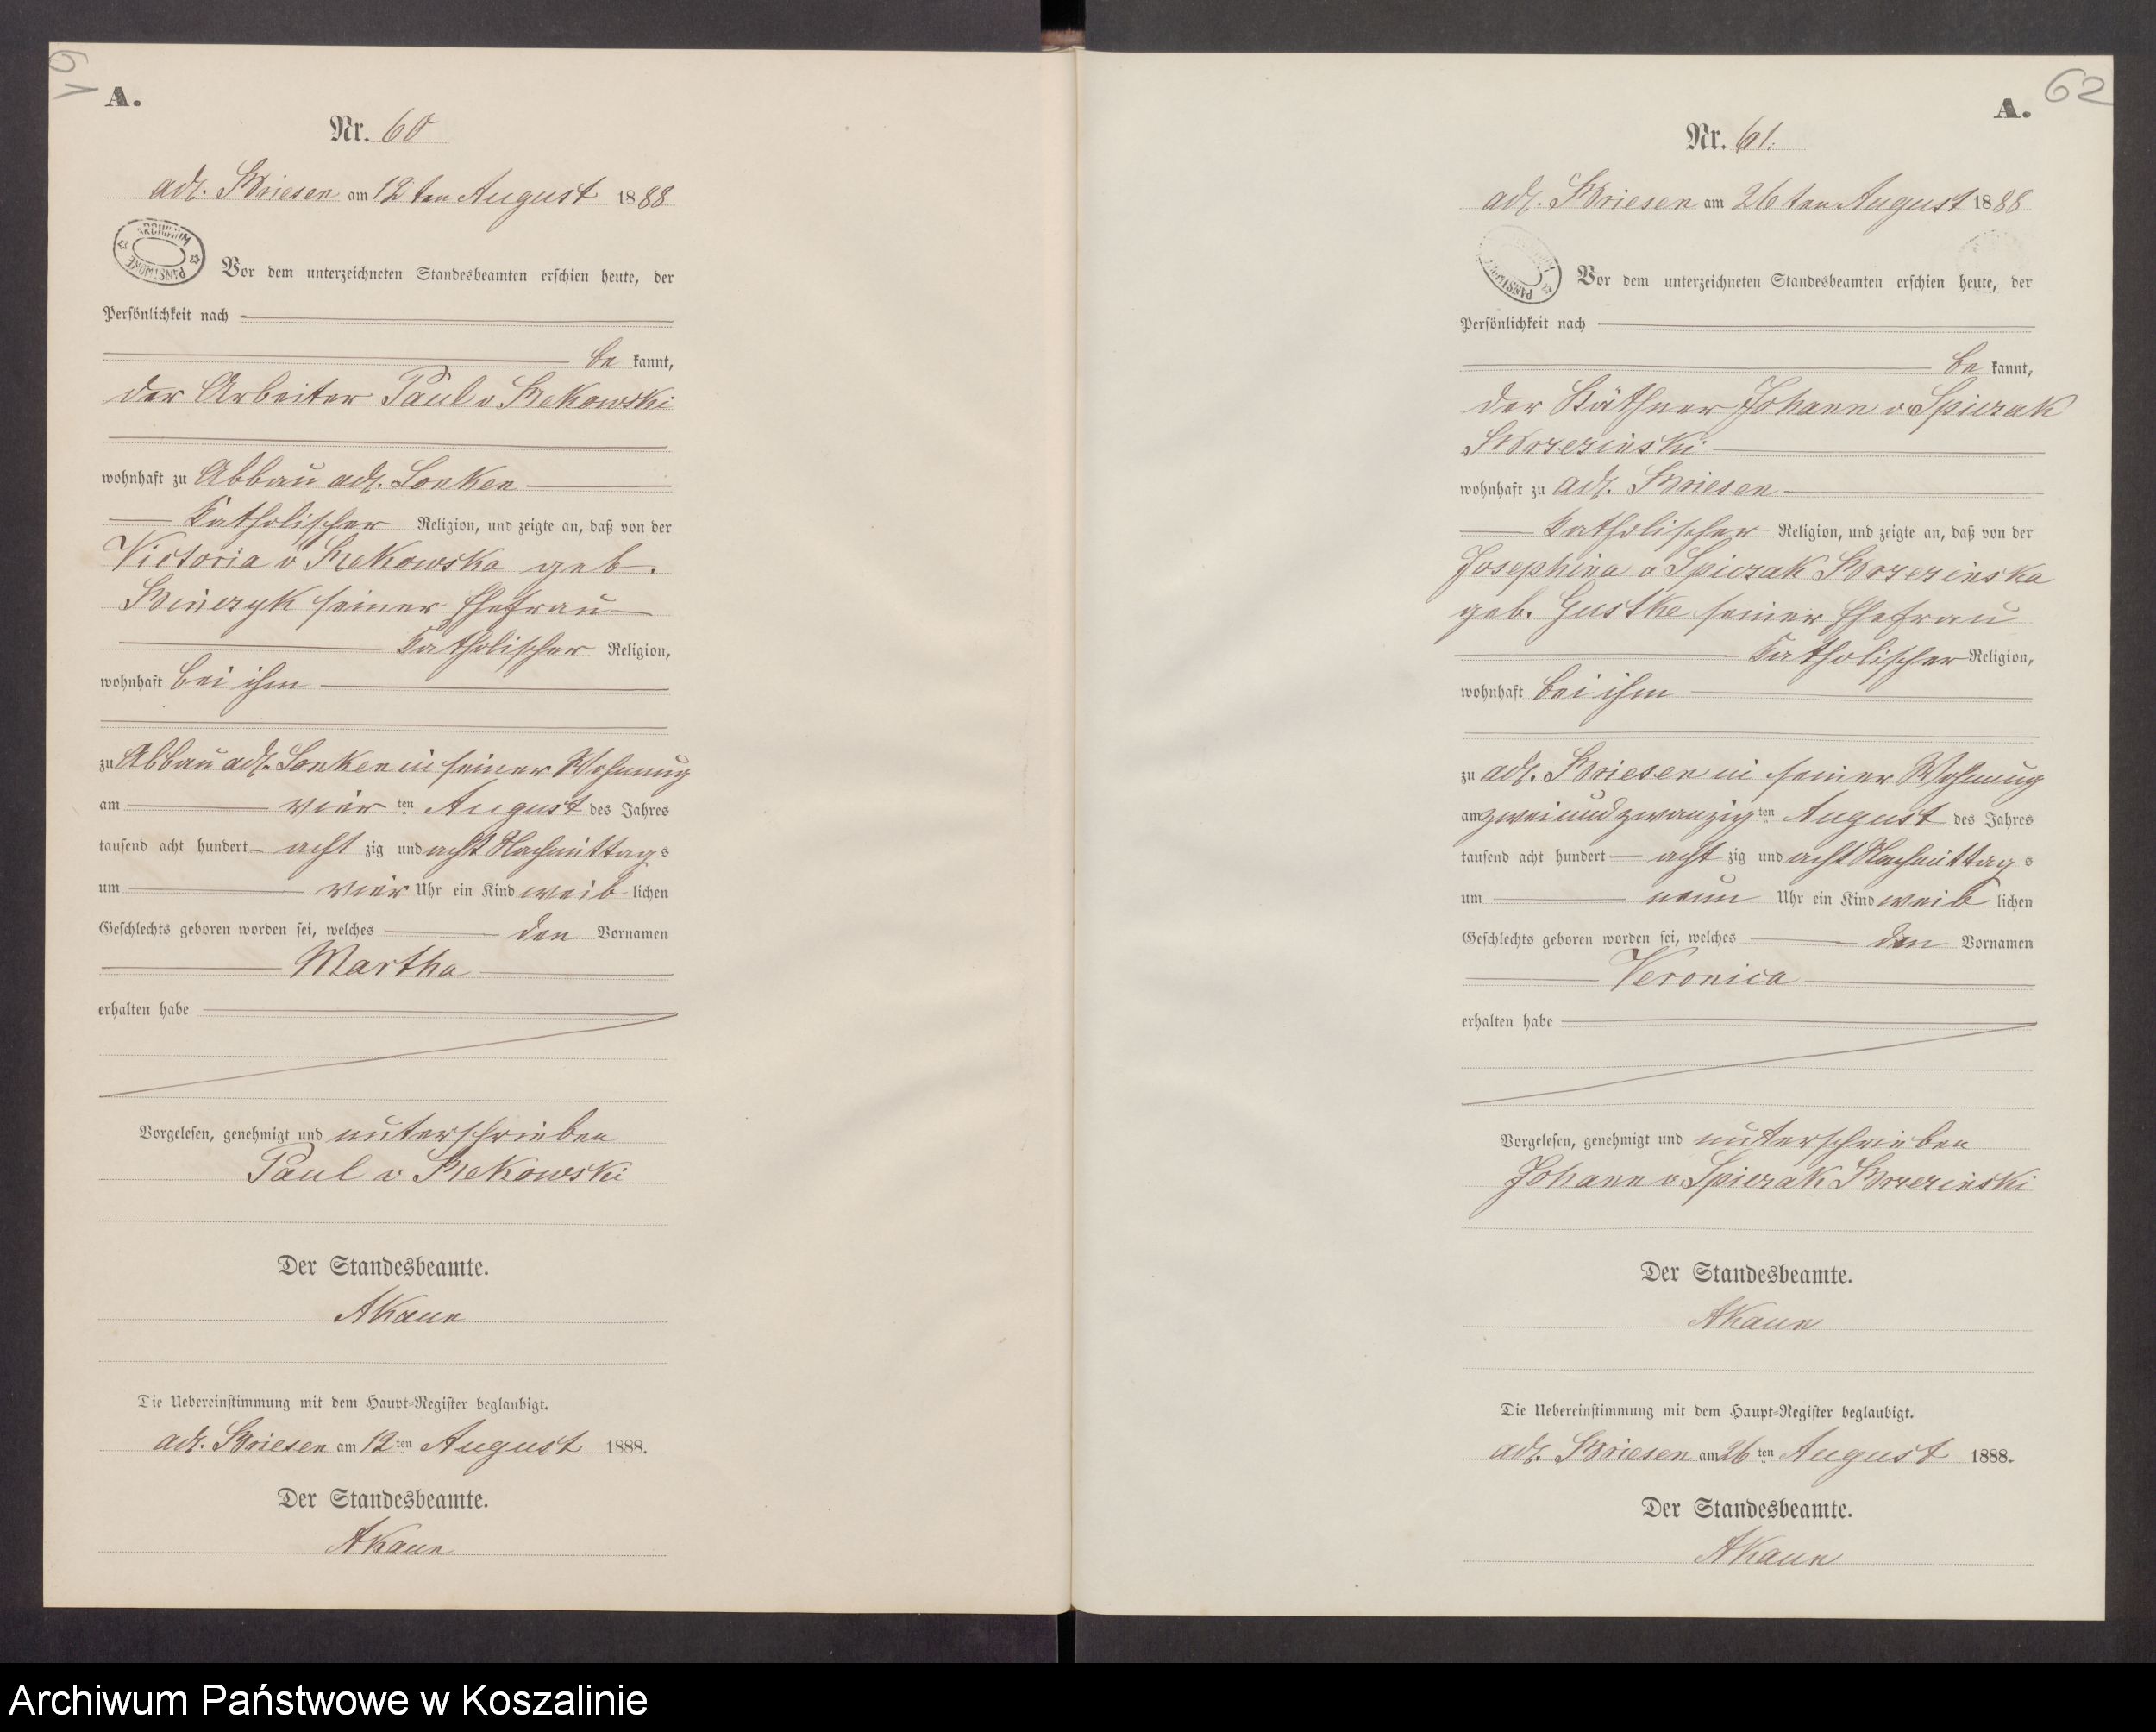 A.
Nr. 60
adl. Briesen am 12 ten August 1888
ARCHIWUM PAŃSTWOWE
Vor dem unterzeichneten Standesbeamten erschien heute, der
Persönlichkeit nach
be kannt,
der Arbeiter Paul v
wohnhaft zu Abbau adl. Lonken
Katholischer Religion, und zeigte an, daß von der
Victoria v geb.
seiner Ehefrau
Katholischer Religion,
wohnhaft bei ihm
zu Abbau adl. Lonken in seiner Wohnung
am vier ten August des Jahres
tausend acht hundert acht zig und acht Nachmittags
um vier Uhr ein Kind weib lichen
Geschlechts geboren worden sei, welches den Vornamen
Martha
erhalten habe
Vorgelesen, genehmigt und unterschrieben
Paul v
Der Standesbeamte.
Die Uebereinstimmung mit dem Haupt-Register beglaubigt.
adl. Briesen am 12 ten August 1888.
Der Standesbeamte.
62
A.
Nr. 61.
adl. Briesen am 26 ten August 1888
Vor dem unterzeichneten Standesbeamten erschien heute, der
Persönlichkeit nach
be kannt,
der Käthner Johann v Spiczak
Brzezinski
wohnhaft zu adl. Briesen
Katholischer Religion, und zeigte an, daß von der
Josephina v Spiczak Brzezinska
geb. Gustke seiner Ehefrau
Katholischer Religion,
wohnhaft bei ihm
zu adl. Briesen in seiner Wohnung
am zweiundzwanzig ten August des Jahres
tausend acht hundert acht zig und acht Nachmittags
um neun Uhr ein Kind weib lichen
Geschlechts geboren worden sei, welches den Vornamen
Veronica
erhalten habe
Vorgelesen, genehmigt und unterschrieben
Johann v Spiczak Brzezinski
Der Standesbeamte.
Die Uebereinstimmung mit dem Haupt-Register beglaubigt.
adl. Briesen am 26 ten August 1888.
Der Standesbeamte.
Archiwum Państwowe w Koszalinie